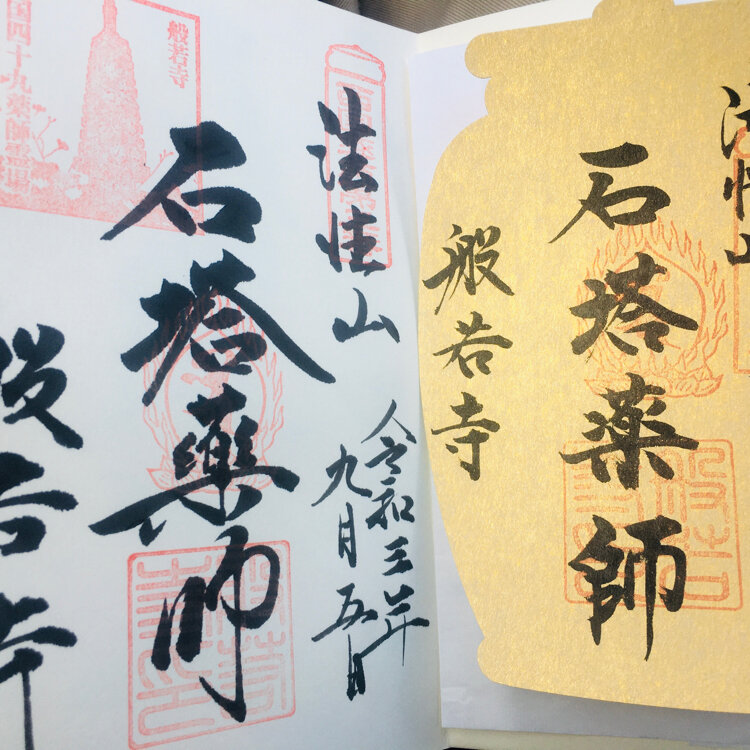 法性山
石塔薬師
般若寺
法性山
令和三年
九月五日
石塔藥師
般若寺
般若寺
国四十九薬師霊場